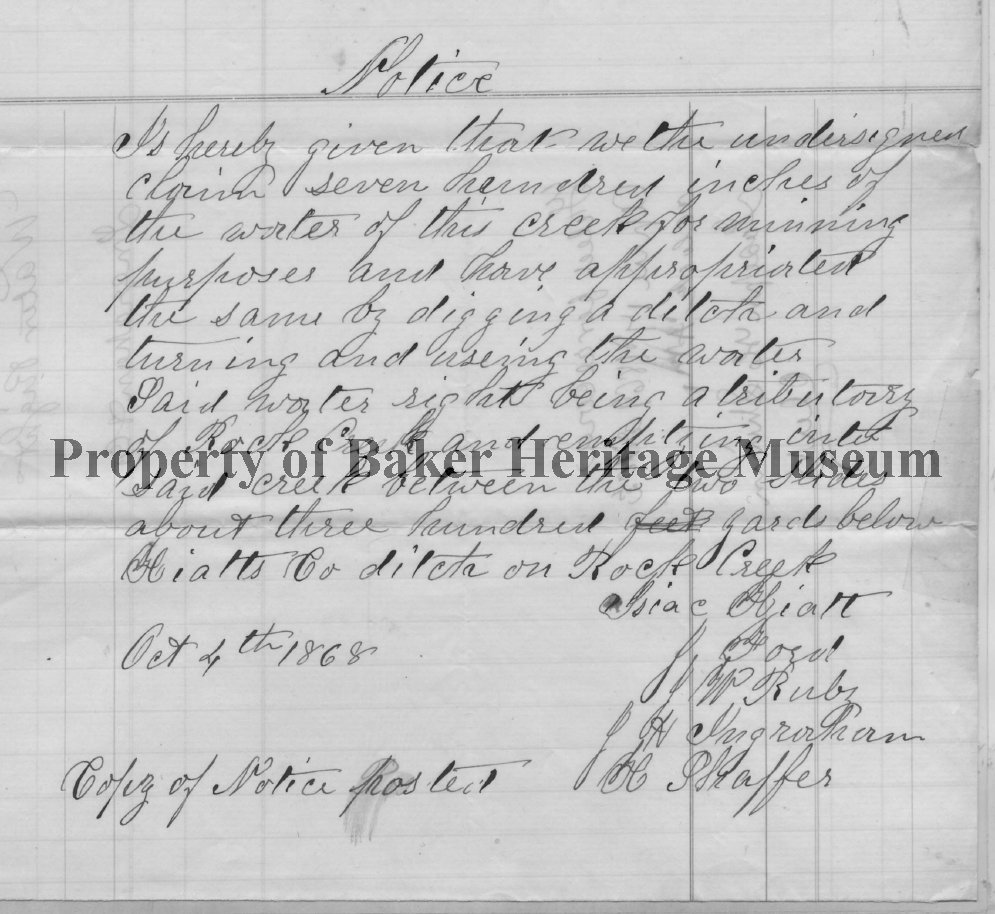 Notice
Is hereby given that we the undersigned
claim seven hundred inches of
the water of this creek for minning
purposes and have appropriated
the same by digging a ditch and
turning and useing the water
Said water right being a tributory
of Rock Creek and emptying into
Property of Baker Heritage Museum
said creek between the two slides
about three hundred feet yards below
Hiatts Co ditch on Rock Creek
Isiac Hiatt
J Ford
Oct 4th 1868
J W Ruby
J H Ingraham
Copy of Notice posted
H Shaffer